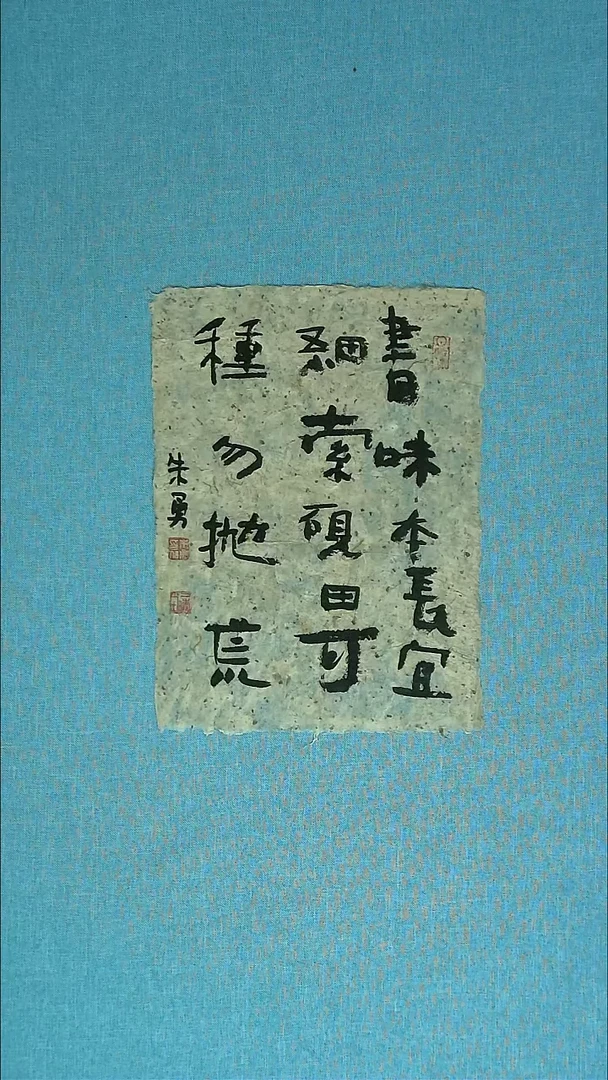 書味本長宜
細索硯田可
種勿抛荒
朱勇